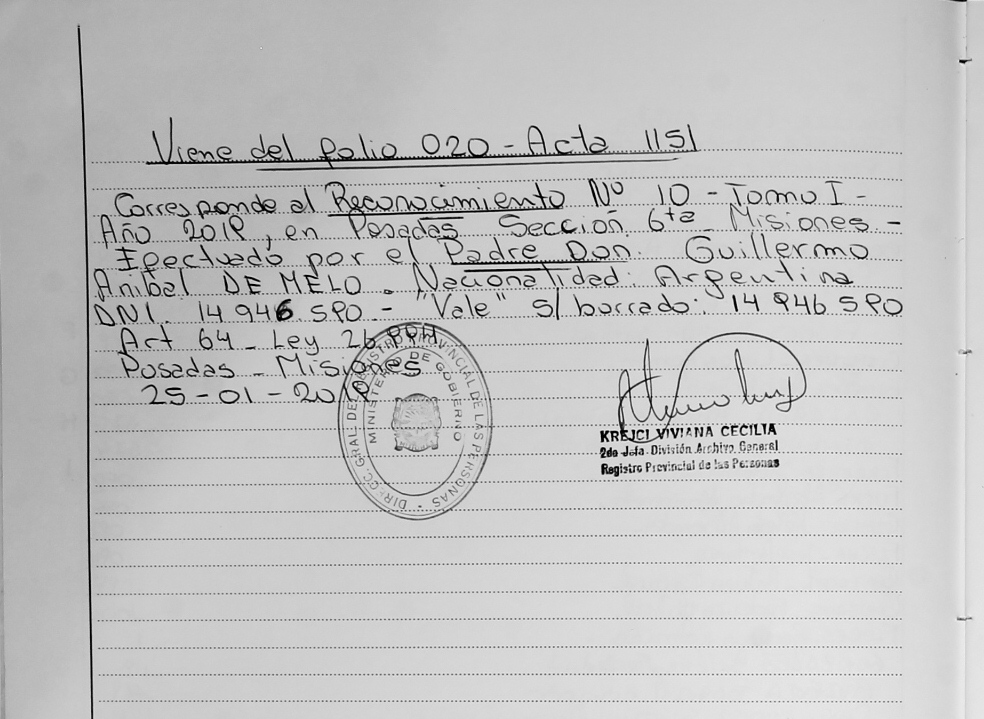 Viene del folio 020 - Acta 1151
Corresponde al Reconocimiento Nº 10 - Tomo I -
Año, en Posadas Sección 6ta Misiones -
Efectuado por el Padre Don. Guillermo
Anibal DE MELO - Nacionalidad: Argentina
DNI. 14 946 - "Vale" s/ borrado: 14 946
Art 64 - Ley 26
Posadas - Misiones
25 - 01 -
DIRECC. GRAL. DEL REGISTRO PROVINCIAL DE LAS PERSONAS
MINISTERIO DE GOBIERNO
KREJCI VIVIANA CECILIA
2da Jefa División Archivo General
Registro Provincial de las Personas